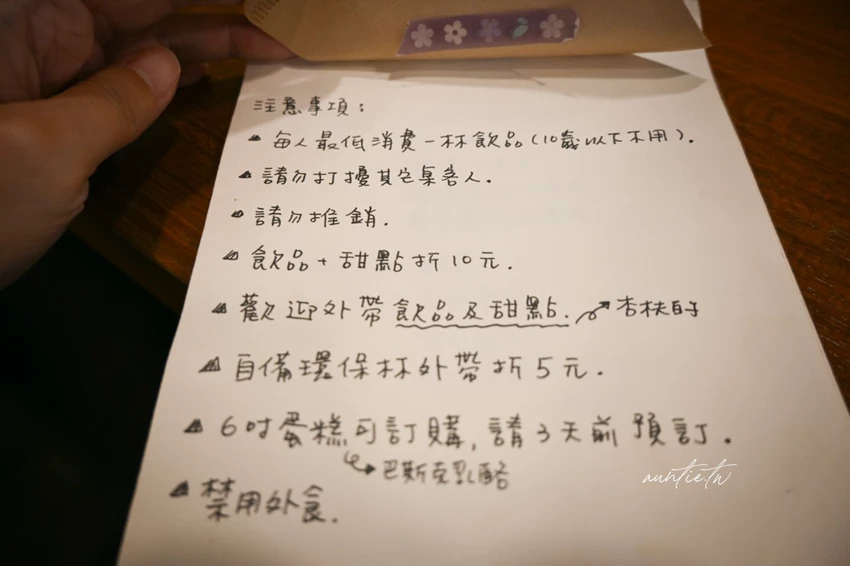 注意事項：
每人最低消費一杯飲品(10歲以下不用).
請勿打擾其它桌客人.
請勿推銷.
飲品+甜點折10元.
歡迎外帶飲品及甜點. 杏桃的
自備環保杯外帶折5元.
6吋蛋糕可訂購,請3天前預訂.
巴斯克乳酪
禁用外食.
auntie.tw